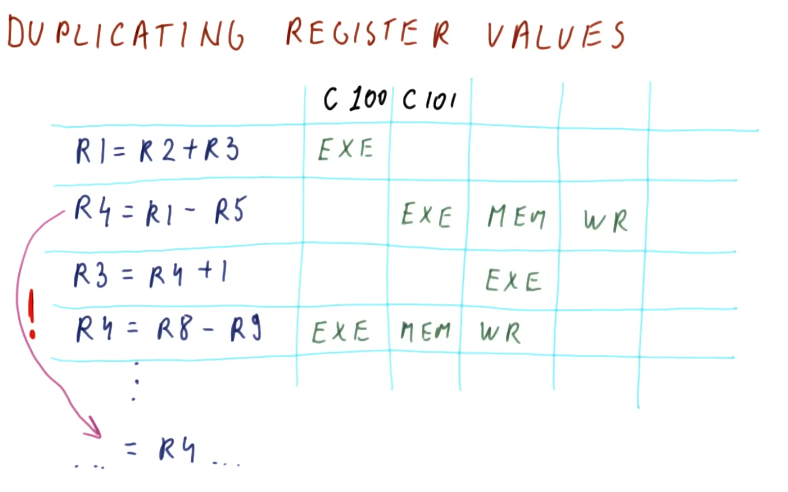 DUPLICATING REGISTER VALUES
C 100 C 101
R1 = R2 + R3 EXE
R4 = R1 - R5 EXE MEM WR
R3 = R4 + 1 EXE
R4 = R8 - R9 EXE MEM WR
⋮
! 
... = R4 ...